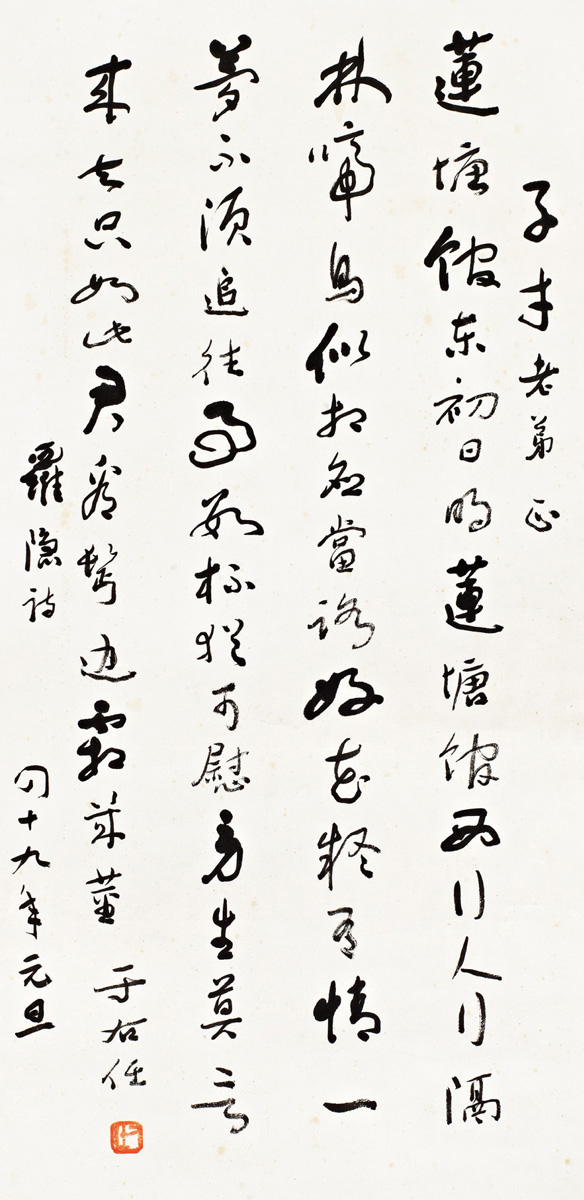 子才老弟正
蓮塘館東初日明蓮塘館西行人行隔
林啼鳥似相應當路好花疑有情一
夢不須追往事數杯猶可慰勞生莫言
來去只如此君看鬢边霜幾莖 于右任
羅隱詩
四十九年元旦